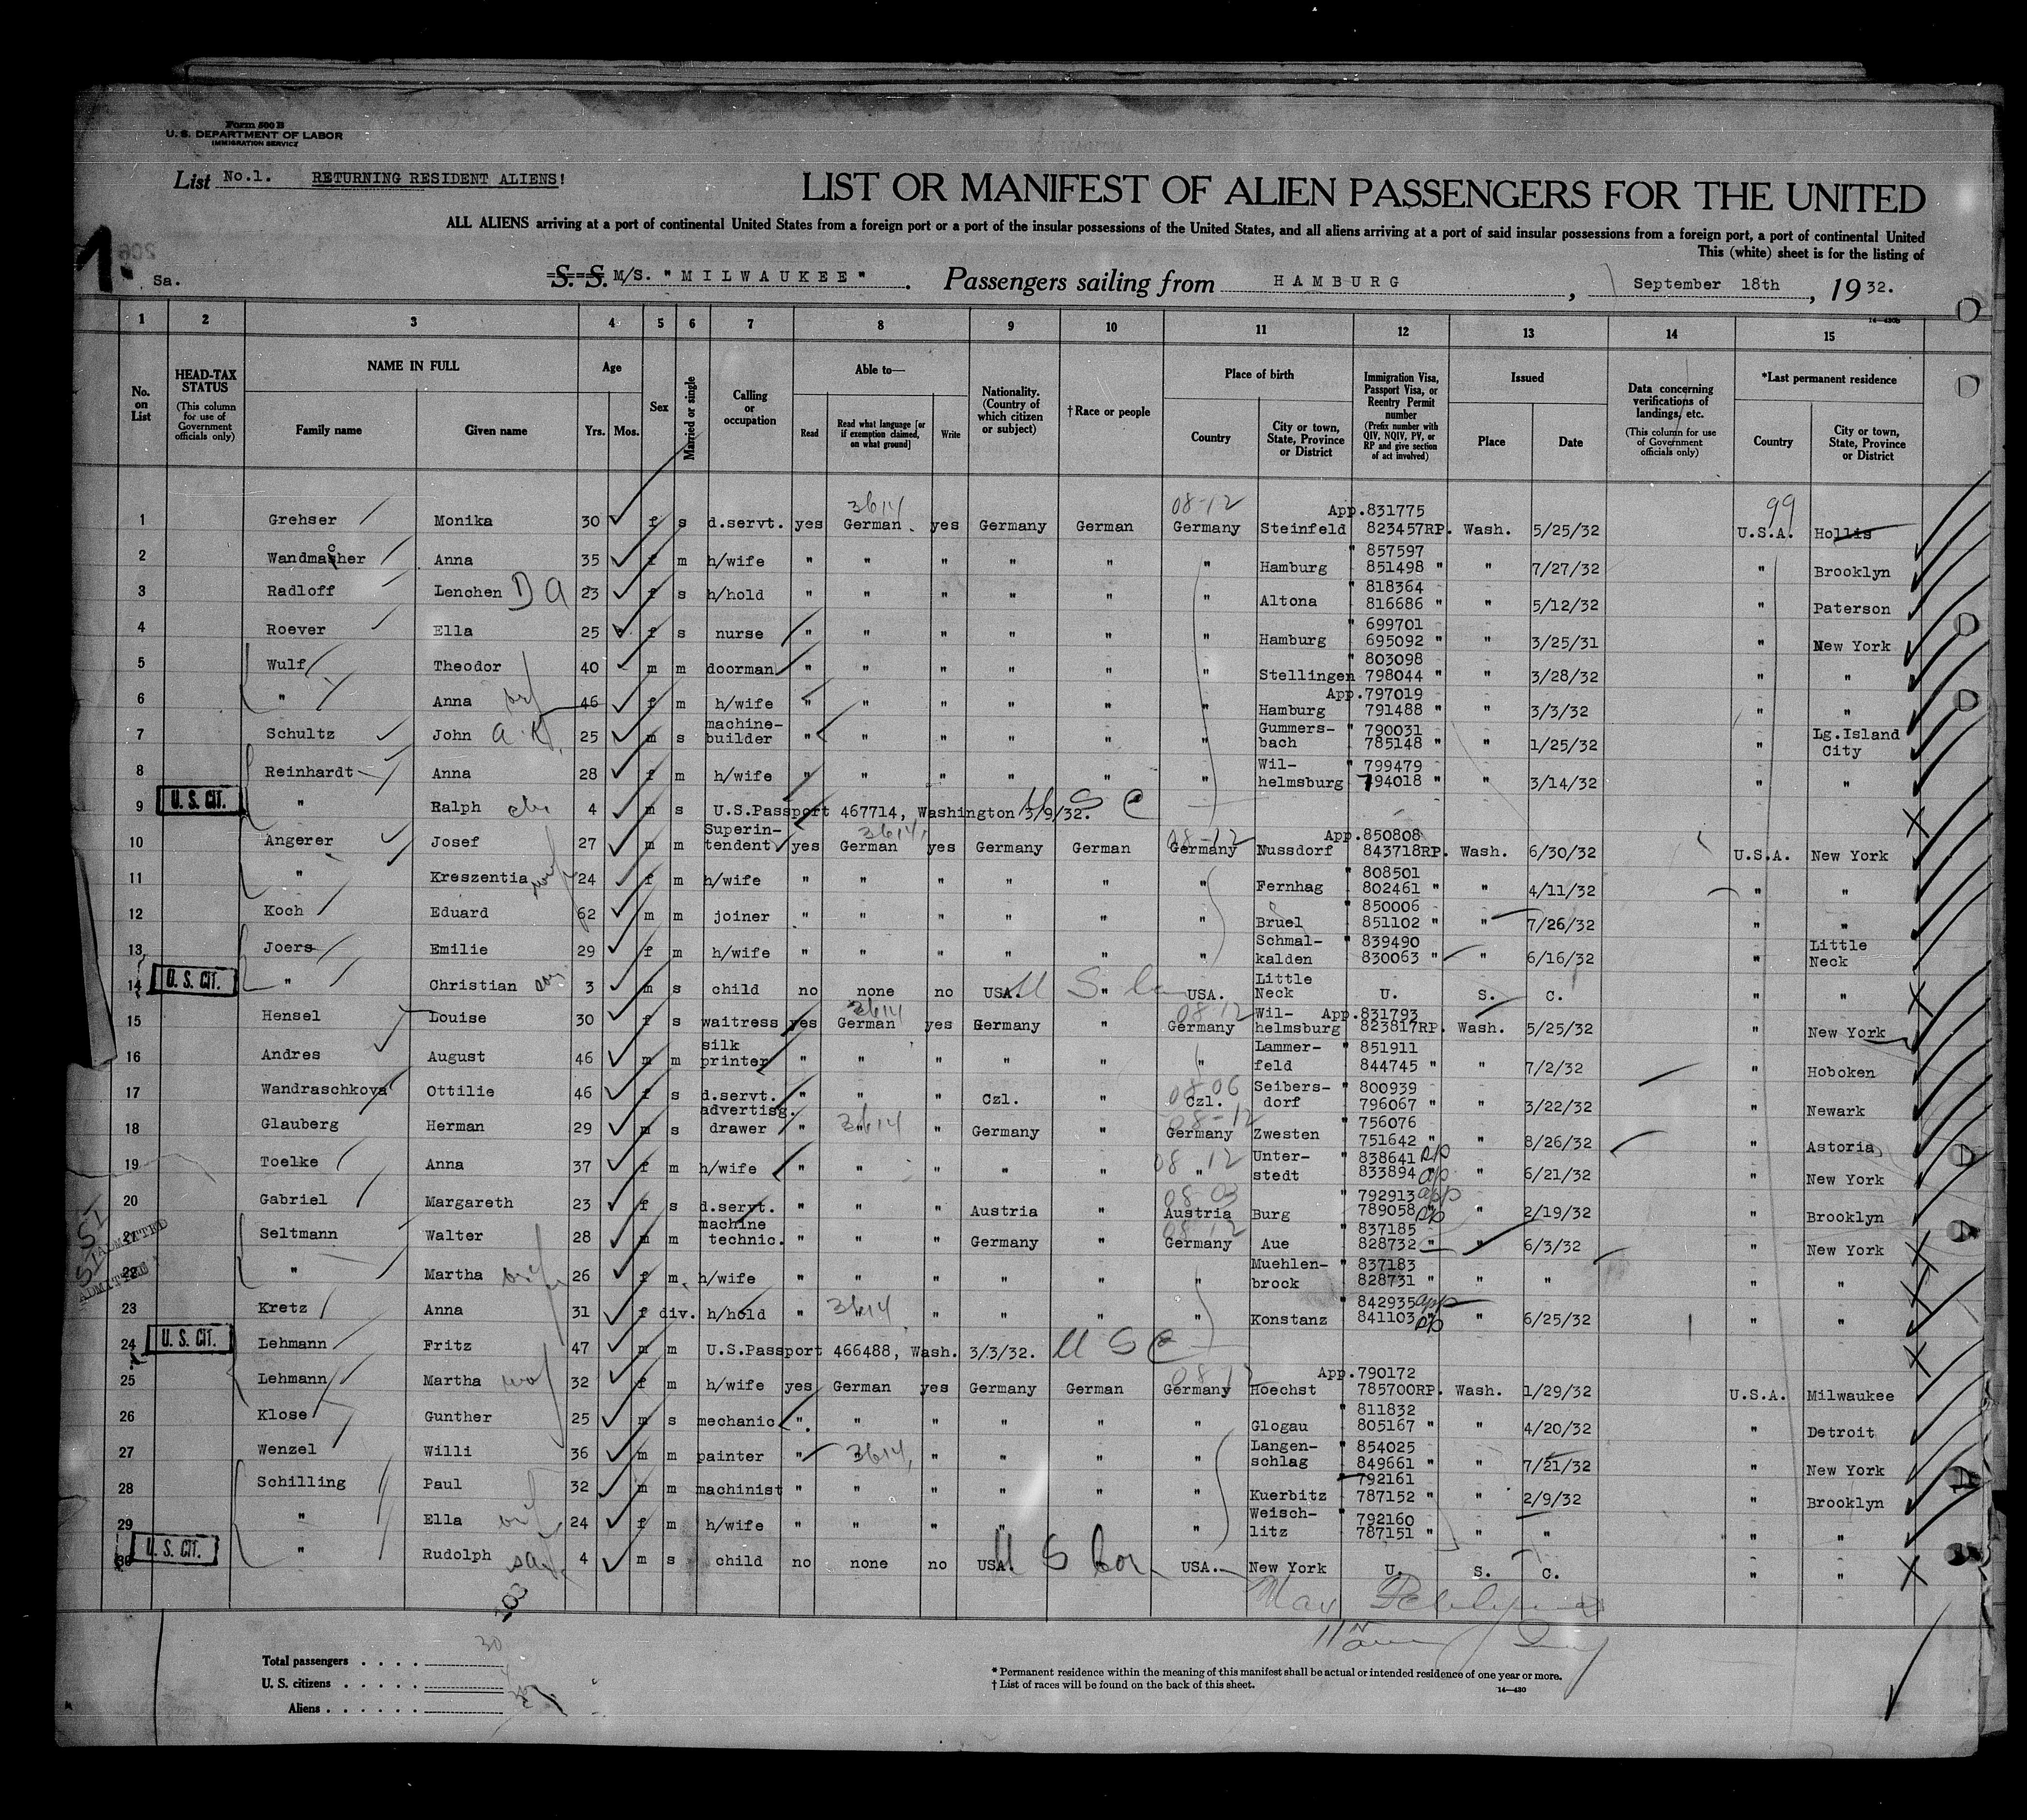 Form 500 B
U. S. DEPARTMENT OF LABOR
IMMIGRATION SERVICE
List No.1. RETURNING RESIDENT ALIENS!
LIST OR MANIFEST OF ALIEN PASSENGERS FOR THE UNITED
ALL ALIENS arriving at a port of continental United States from a foreign port or a port of the insular possessions of the United States, and all aliens arriving at a port of said insular possessions from a foreign port, a port of continental United
This (white) sheet is for the listing of
Sa. S. S. M/S. "MILWAUKEE" . Passengers sailing from HAMBURG , September 18th , 19 32.
14—430b
1 2 3 4 5 6 7 8 9 10 11 12 13 14 15
No. on List
HEAD-TAX STATUS (This column for use of Government officials only)
NAME IN FULL Family name Given name
Age Yrs. Mos.
Sex
Married or single
Calling or occupation
Able to— Read Read what language [or if exemption claimed, on what ground] Write
Nationality. (Country of which citizen or subject)
†Race or people
Place of birth Country City or town, State, Province or District
Immigration Visa, Passport Visa, or Reentry Permit number (Prefix number with QIV, NQIV, PV, or RP and give section of act involved)
Issued Place Date
Data concerning verifications of landings, etc. (This column for use of Government officials only)
*Last permanent residence Country City or town, State, Province or District
3614 08-12 99
1 Grehser Monika 30 f s d.servt. yes German yes Germany German Germany Steinfeld App.831775 823457RP. Wash. 5/25/32 U.S.A. Hollis
2 Wandmacher Anna 35 f m h/wife " " " " " " Hamburg " 857597 851498 " " 7/27/32 " Brooklyn
3 Radloff Lenchen D A 23 f s h/hold " " " " " " Altona " 818364 816686 " " 5/12/32 " Paterson
4 Roever Ella 25 f s nurse " " " " " " Hamburg " 699701 695092 " " 3/25/31 " New York
5 Wulf Theodor 40 m m doorman " " " " " " Stellingen " 803098 798044 " " 3/28/32 " "
6 " Anna 46 f m h/wife " " " " " " Hamburg App.797019 791488 " " 3/3/32 " "
7 Schultz John 25 m s machine-builder " " " " " " Gummers-bach " 790031 785148 " " 1/25/32 " Lg.Island City
8 Reinhardt Anna 28 f m h/wife " " " " " " Wil-helmsburg " 799479 794018 " " 3/14/32 " "
U. S. CIT. 9 " Ralph 4 m s U.S.Passport 467714, Washington 3/9/32. U S C
10 Angerer Josef 27 m m Superin-tendent yes German yes Germany German Germany Nussdorf App.850808 843718RP. Wash. 6/30/32 U.S.A. New York
11 " Kreszentia wif 24 f m h/wife " " " " " " Fernhag " 808501 802461 " " 4/11/32 " "
12 Koch Eduard 62 m m joiner " " " " " " Bruel " 850006 851102 " " 7/26/32 " "
13 Joers Emilie 29 f m h/wife " " " " " " Schmal-kalden " 839490 830063 " " 6/16/32 " Little Neck
U. S. CIT. 14 " Christian 3 m s child no none no USA. " USA. Little Neck U. S. C. " "
15 Hensel Louise 30 f s waitress yes German yes Germany " Germany Wil-helmsburg App.831793 823817RP. Wash. 5/25/32 " New York
16 Andres August 46 m m silk printer " " " " " " Lammer-feld " 851911 844745 " " 7/2/32 " Hoboken
17 Wandraschkova Ottilie 46 f s d.servt. " " " Czl. " Czl. 08-06 Seibers-dorf " 800939 796067 " " 3/22/32 " Newark
18 Glauberg Herman 29 m s advertisg. drawer " 3614 " Germany " Germany 08-12 Zwesten " 756076 751642 " " 8/26/32 " Astoria
19 Toelke Anna 37 f m h/wife " " " " " " 08 12 Unter-stedt " 838641 833894 " " 6/21/32 " New York
20 Gabriel Margareth 23 f s d.servt. " " " Austria " Austria 08 03 Burg " 792913 789058 " " 2/19/32 " Brooklyn
21 Seltmann Walter 28 m m machine technic. " " " Germany " Germany 08 12 Aue " 837185 828732 " " 6/3/32 " New York
22 " Martha 26 f m h/wife " " " " " " Muehlen-brock " 837183 828731 " " " " "
SI SI ADMITTED ADMITTED
23 Kretz Anna 31 f div. h/hold " 3614 " " " " Konstanz " 842935 841103 " " 6/25/32 " "
U. S. CIT. 24 Lehmann Fritz 47 m m U.S.Passport 466488, Wash. 3/3/32. U S C
25 Lehmann Martha 32 f m h/wife yes German yes Germany German Germany Hoechst App.790172 785700RP. Wash. 1/29/32 U.S.A. Milwaukee
26 Klose Gunther 25 m s mechanic " " " " " " Glogau " 811832 805167 " " 4/20/32 " Detroit
27 Wenzel Willi 36 m m painter " 3614 " " " " Langen-schlag " 854025 849661 " " 7/21/32 " New York
28 Schilling Paul 32 m m machinist " " " " " " Kuerbitz " 792161 787152 " " 2/9/32 " Brooklyn
29 " Ella 24 f m h/wife " " " " " " Weisch-litz 792160 787151 " " " " "
U. S. CIT. 30 " Rudolph 4 m s child no none no USA. USA. New York U. S. C. " "
103
Total passengers . . . . 30
U. S. citizens . . . . .
Aliens . . . . . .
* Permanent residence within the meaning of this manifest shall be actual or intended residence of one year or more.
† List of races will be found on the back of this sheet.
14—430